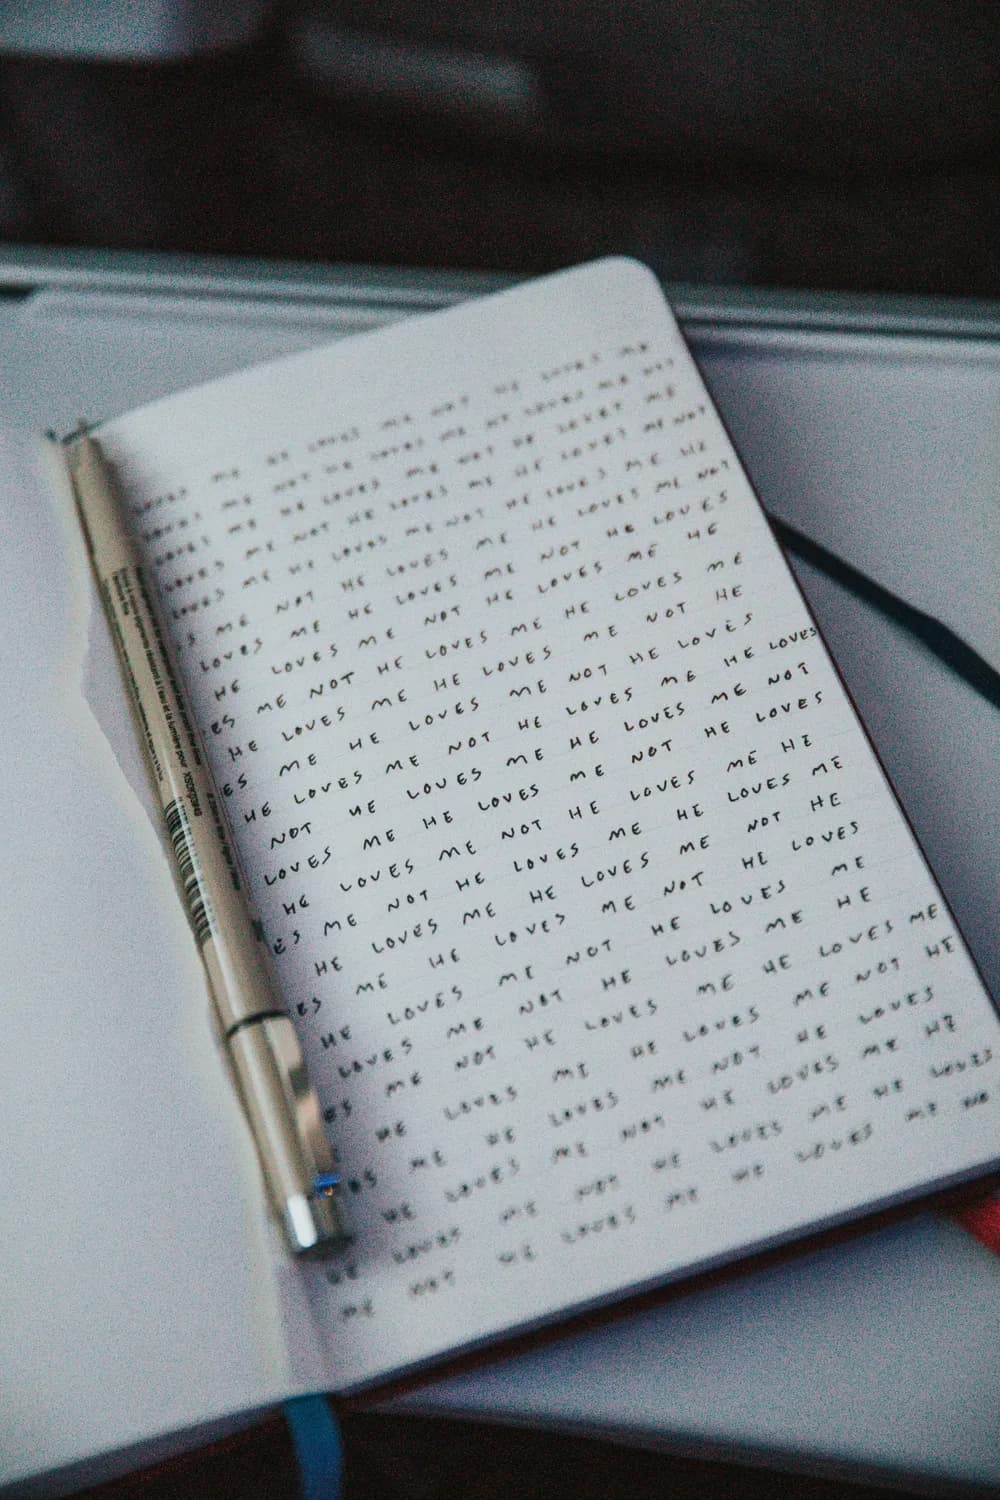 LOVES ME HE LOVES ME NOT HE LOVES ME
LOVES ME NOT HE LOVES ME HE LOVES ME NOT
LOVES ME HE LOVES ME NOT HE LOVES ME
LOVES ME NOT HE LOVES ME HE LOVES ME NOT
LOVES ME HE LOVES ME NOT HE LOVES ME HE
S ME NOT HE LOVES ME HE LOVES ME NOT
LOVES ME HE LOVES ME NOT HE LOVES
HE LOVES ME NOT HE LOVES ME HE
ES ME NOT HE LOVES ME HE LOVES ME
HE LOVES ME HE LOVES ME NOT HE
ES ME HE LOVES ME NOT HE LOVES
HE LOVES ME NOT HE LOVES ME HE LOVES
NOT HE LOVES ME HE LOVES ME NOT
LOVES ME HE LOVES ME NOT HE LOVES
HE LOVES ME NOT HE LOVES ME HE
ES ME NOT HE LOVES ME HE LOVES ME
HE LOVES ME HE LOVES ME NOT HE
ES ME HE LOVES ME NOT HE LOVES
HE LOVES ME NOT HE LOVES ME
LOVES ME NOT HE LOVES ME HE
ES ME NOT HE LOVES ME HE LOVES ME
HE LOVES ME HE LOVES ME NOT HE
ES ME HE LOVES ME NOT HE LOVES
HE LOVES ME NOT HE LOVES ME HE
HE LOVES ME NOT HE LOVES ME HE LOVES
ME NOT HE LOVES ME HE LOVES ME NO